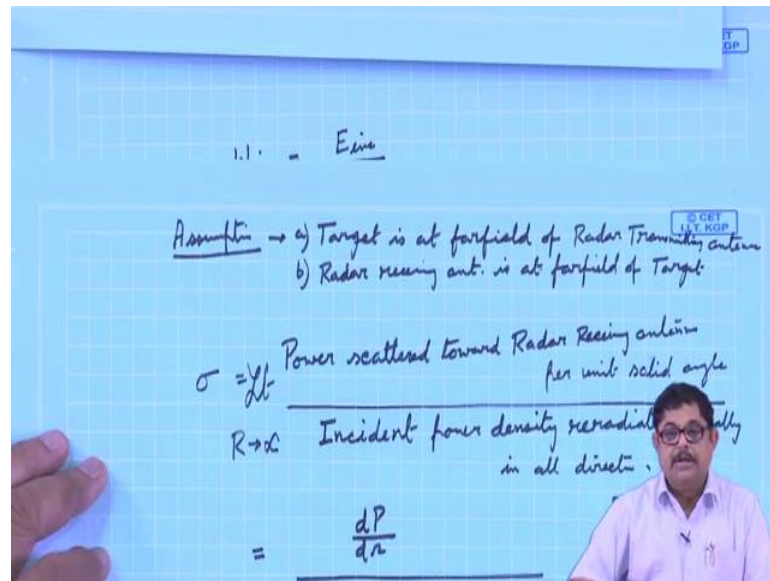 CET
GP
1.1. - Einc
© CET
I.I.T. KGP
Assumption → a) Target is at farfield of Radar Transmitting antenna
b) Radar receiving ant. is at farfield of Target
σ = Lt Power scattered toward Radar Receiving antenna
per unit solid angle
R→∝ Incident power density reradiated ally
in all direct.
= dP
dΩ